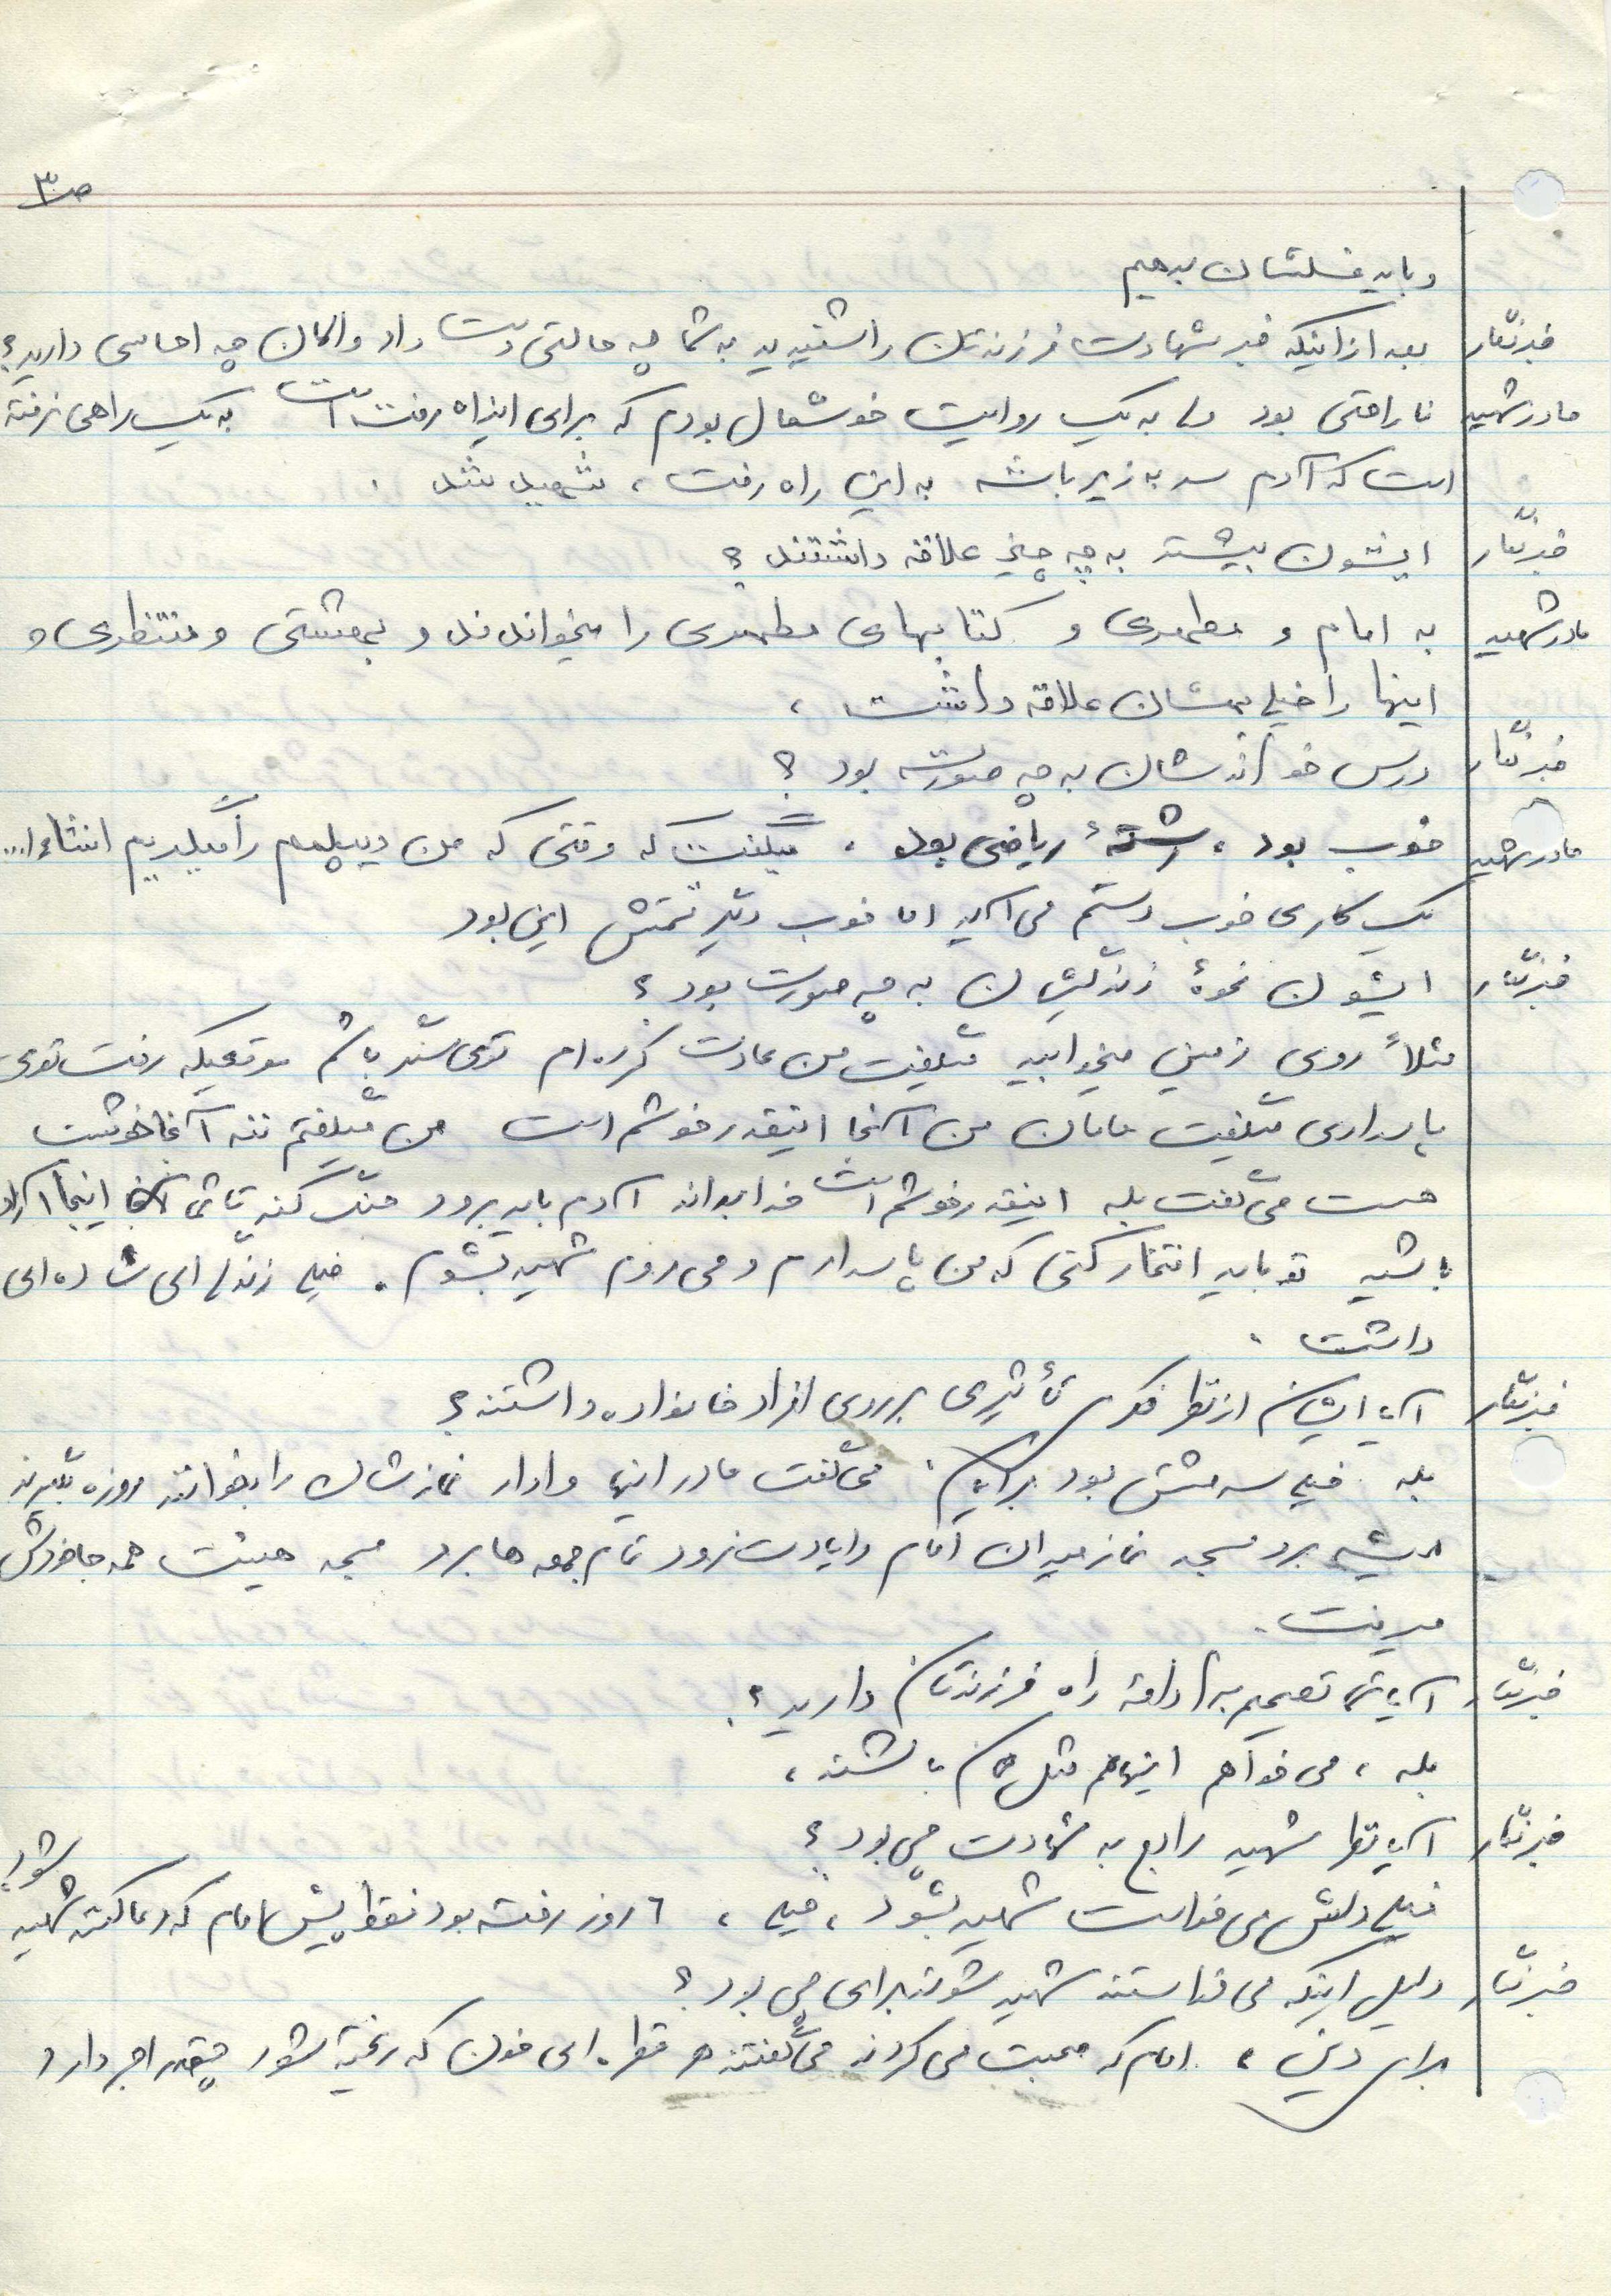 ص ۳
و باید غسلشان بدهیم
خبرنگار بعد از اینکه خبر شهادت فرزندتان را شنیدید به شما چه حالتی دست داد و الان چه احساسی دارید؟
مادر شهید ناراحتی بود ولی به یک روایت خوشحال بودم که برای این راه رفت است به یک راهی نرفته
است که آدم سر به زیر باشه به این راه رفت، شهید شد.
خبرنگار ایشون بیشتر به چه چیز علاقه داشتند؟
مادر شهید به امام و مطهری و کتابهای مطهری را میخواندند و بهشتی و منتظری و
اینها را خیلی بهشان علاقه داشت،
خبرنگار درس خواندنشان به چه صورت بود؟
مادر شهید خوب بود، رشتهٔ ریاضی بود، میگفت که وقتی که من دیپلمم را میگیریم انشاءا...
یک کاری خوب دستم می آید اما خوب دیگر قسمتش این بود
خبرنگار ایشون نحوهٔ زندگیشان به چه صورت بود؟
مثلاً روی زمین میخوابید میگفت من عادت کرده ام توی سنگر باشم موقعیکه رفت توی
پاسداری میگفت مامان من آنجا اینقدر خوشم است من میگفتم ننه آنجا خوشت
هست می گفت بله اینقدر خوشم است خدا بداند آدم باید برود جنگ کند تا شما اینجا آزاد
باشید تو باید افتخار کنی که من پاسدارم و می روم شهید بشوم. خیلی زندگی ای ساده ای
داشت.
خبرنگار آیا ایشان از نظر فکری تأثیری بر روی افراد خانواده داشتند؟
بله خیلی سرمشق بود برایمان. می گفت مادر اینها وادار نمازشان را بخوانند روزه بگیرند
همیشه برد مسجد نماز میدان امام را یادت نرود تمام جمعه ها برد مسجد هیئت همه جا خودش
میرفت.
خبرنگار آیا شما تصمیم به ادامهٔ راه فرزندتان دارید؟
بله، می خواهم اینها هم مثل همان باشند،
خبرنگار آیا نظر شهید راجع به شهادت چی بود؟
خیلی دلش می خواست شهید بشود، خیلی، ۶ روز رفته بود فقط پیش امام که دعا کند شهید شود.
خبرنگار دلیل اینکه می خواستند شهید شوند برای چی بود؟
برای دین، امام که صحبت می کردند می گفتند هر قطره ای خون که ریخته شود چقدر اجر دارد